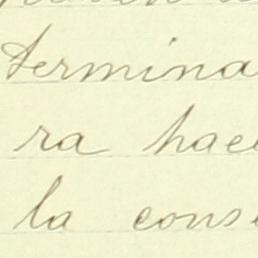 termina
ra hace
la cons